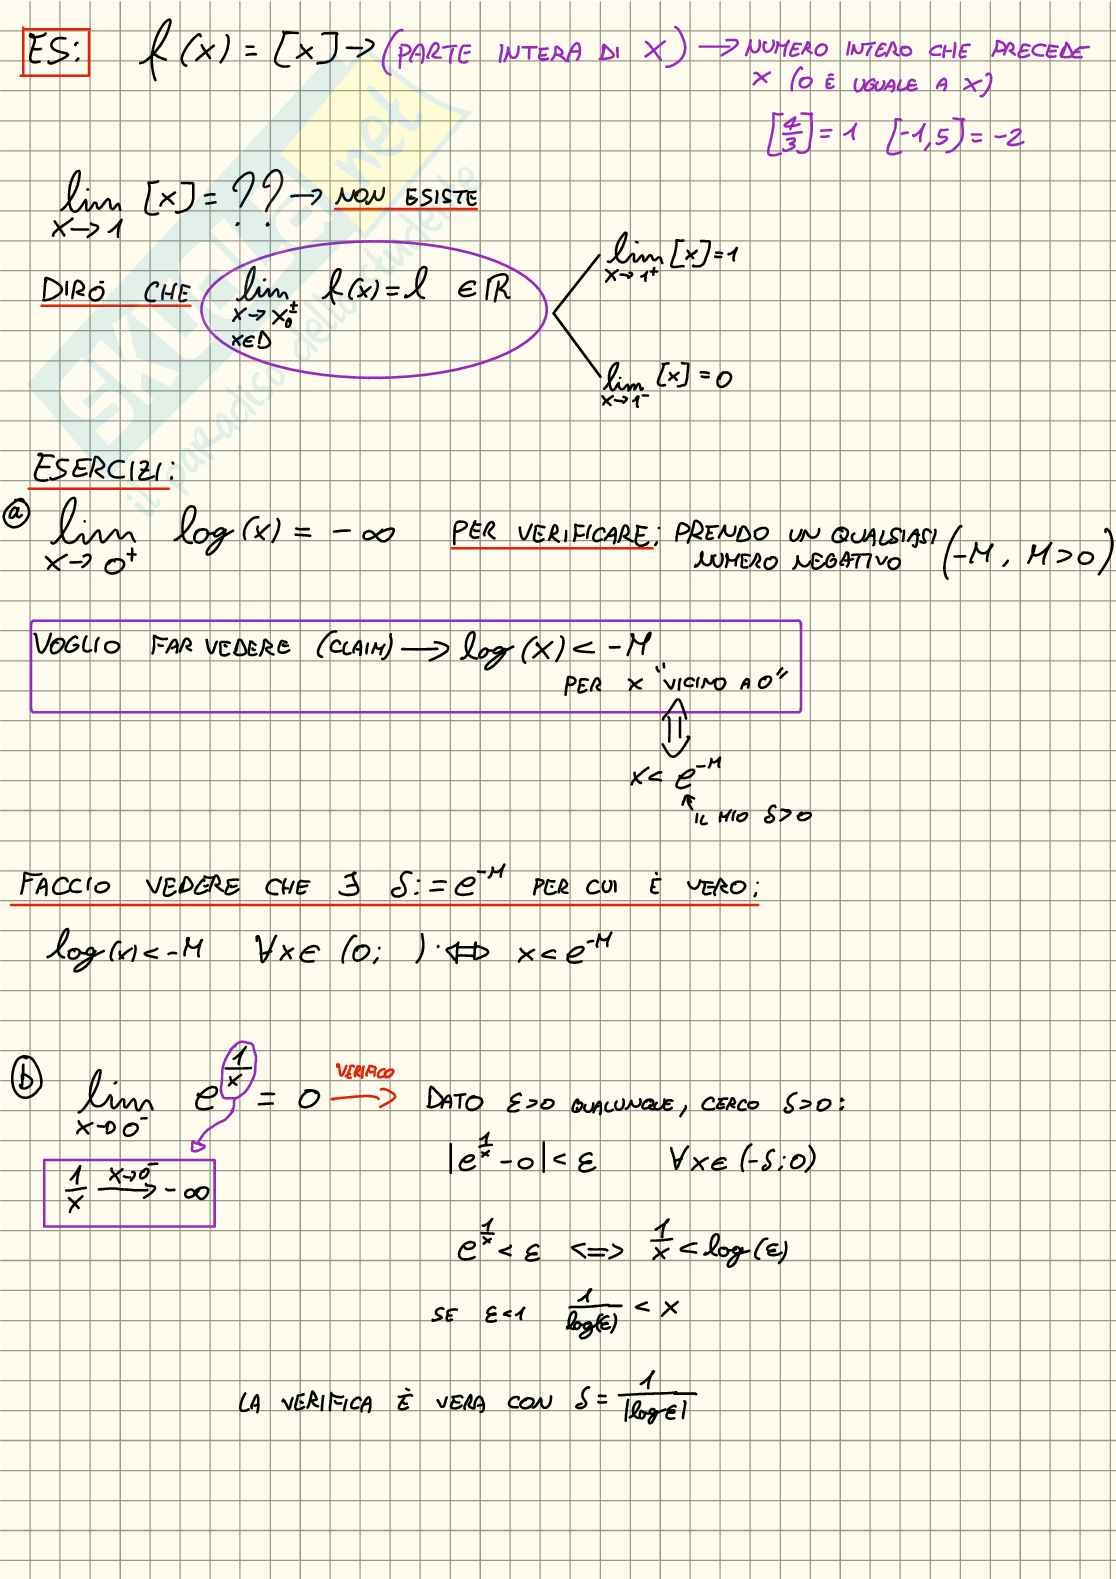 ES: f(x) = [x] → (PARTE INTERA DI X) → NUMERO INTERO CHE PRECEDE
X (O È UGUALE A X)
[4/3] = 1 [-1,5] = -2
lim x→1 [x] = ?? → NON ESISTE
lim x→1⁺ [x] = 1
DIRÒ CHE lim x→x₀± x∈D f(x) = l ∈ ℝ
lim x→1⁻ [x] = 0
ESERCIZI:
ⓐ lim x→0⁺ log(x) = -∞ PER VERIFICARE: PRENDO UN QUALSIASI
NUMERO NEGATIVO (-M, M>0)
VOGLIO FAR VEDERE (CLAIM) → log(x) < -M
PER X "VICINO A 0"
⇕
x < e^-M
IL MIO δ>0
FACCIO VEDERE CHE ∃ δ := e^-M PER CUI È VERO:
log(x) < -M ∀x∈ (0; ) ⇔ x < e^-M
ⓑ lim x→0⁻ e^(1/x) = 0 VERIFICO → DATO ε>0 QUALUNQUE, CERCO δ>0:
|e^(1/x) - 0| < ε ∀x∈ (-δ;0)
1/x x→0⁻ → -∞
e^(1/x) < ε <=> 1/x < log(ε)
SE ε<1 1/log(ε) < x
LA VERIFICA È VERA CON δ = 1/|log ε|
SKUOLA.net
il paradiso dello studente